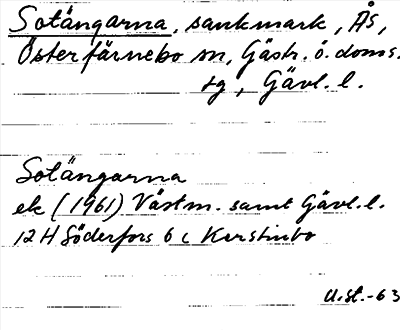 Sotängarna, sankmark, Ås,
Österfärnebo sn, Gästr. ö. doms.
sg, Gävl. l.
Sotängarna
ek (1961) Västm. samt Gävl. l.
12 H Söderfors 6 c Kerstinbo
U.st.-63